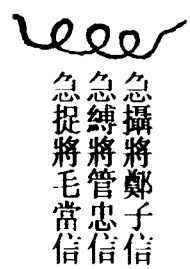 急攝將鄭子信
急縛將管忠信
急捉將毛當信